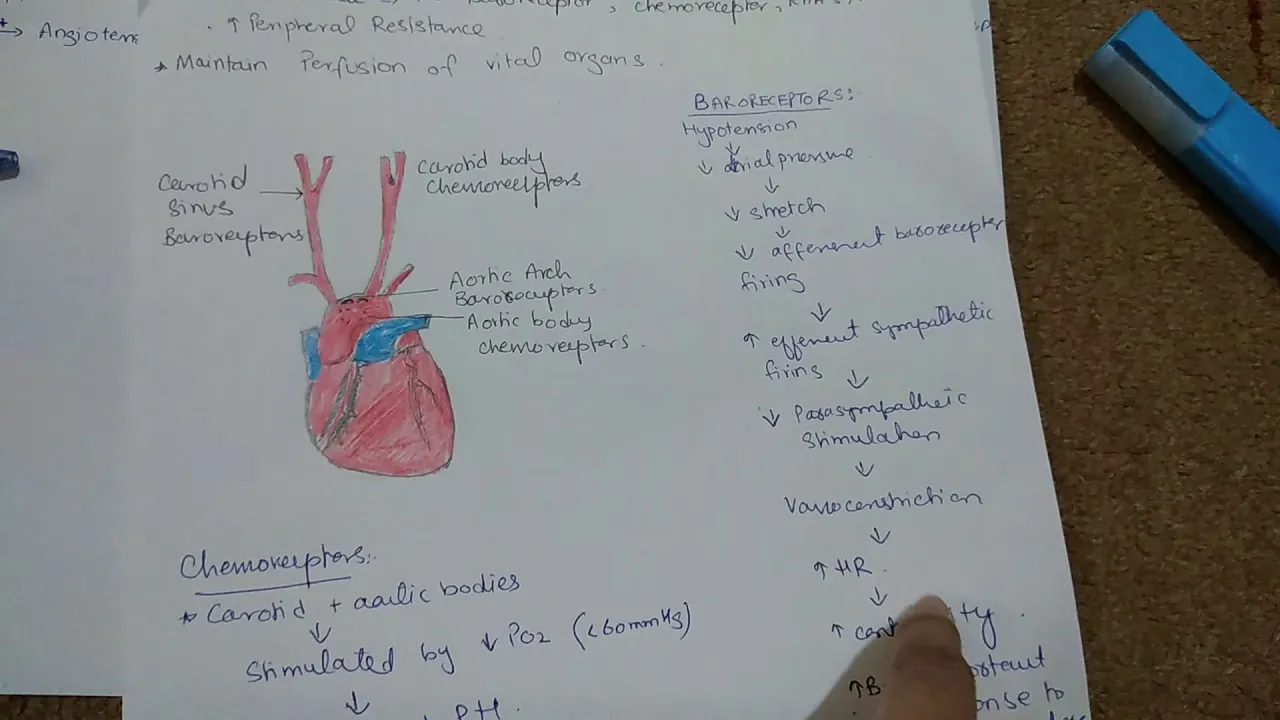 Baroreceptor, chemoreceptor,
→ Angioten
. ↑ Peripheral Resistance
* Maintain Perfusion of vital organs.
Carotid
sinus
Baroreceptors
Carotid body
chemoreceptors
Aortic Arch
Baroreceptors.
Aortic body
chemoreceptors.
BARORECEPTORS:
Hypotension
↓
↓ arterial pressure
↓
↓ stretch
↓
↓ afferent baroreceptor
firing
↓
↑ efferent sympathetic
firing
↓
↓ Parasympathetic
stimulation
↓
Vasoconstriction
↓
↑ HR.
↓
↑ cont ity.
↑ B
onse to
Chemoreceptors:
* Carotid + aortic bodies
↓
Stimulated by ↓ PO2 (<60mmHg)
↓
↓ PH.